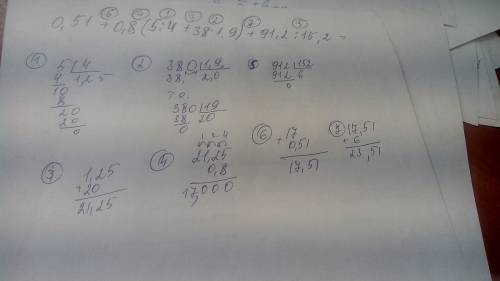 ⑥ ④ ① ③ ② ⑦ ⑤
0,51 + 0,8 (5:4 + 38:1,9) + 91,2:15,2 =
① 5 | 4
4 1,25
10
8
20
20
0
② 38,0 | 1,9
38, 2,0
т.е.
380 | 19
38 20
0
5 912 | 152
912 6
0
③ 1,25
+20
21,25
④ 1 2 4
21,25
0,8
17,000
⑥ +17
0,51
17,51
⑦ 17,51
+ 6
23,51